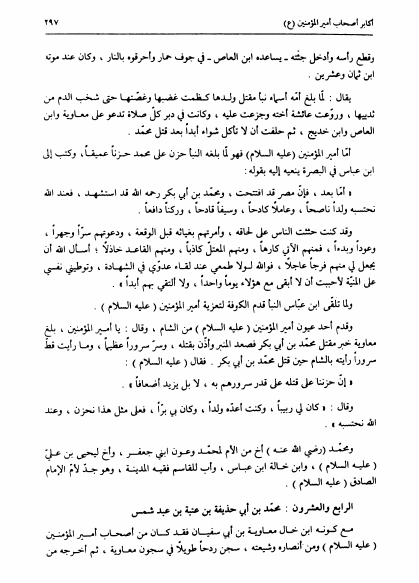 أكابر أصحاب أمير المؤمنين (ع) ٢٩٧
وقطع رأسه وأدخل جثته ـ يساعده ابن العاص ـ في جوف حمار وأحرقوه بالنار ، وكان عند موته
ابن ثمان وعشرين .
يقال : لمّا بلغ أمّه أسماء نبأ مقتل ولدها كظمت غضبها وغصّتها حتى شخب الدم من
ثدييها ، وروّعت عائشة أخته وجزعت عليه ، وكانت في دبر كلّ صلاة تدعو على معاوية وابن
العاص وابن خديج ، ثم حلفت أن لا تأكل شواء أبداً بعد قتل محمّد .
أمّا أمير المؤمنين (عليه السلام) فهو لمّا بلغه النبأ حزن على محمد حزناً عميقاً، وكتب إلى
ابن عباس في البصرة ينعيه إليه بقوله :
« أمّا بعد ، فإنّ مصر قد افتتحت ، ومحمّد بن أبي بكر رحمه الله قد استشهد ، فعند الله
نحتسبه ولداً ناصحاً ، وعاملاً كادحاً ، وسيفاً قادحاً ، وركناً دافعاً .
وقد كنت حثثت الناس على لحاقه ، وأمرتهم بغياثه قبل الوقعة ، ودعوتهم سرّاً وجهراً ،
وعوداً وبدءاً ، فمنهم الآتي كارهاً ، ومنهم المعتلّ كاذباً ، ومنهم القاعد خاذلاً ؛ أسأل الله أن
يجعل لي منهم فرجاً عاجلاً ، فوالله لولا طمعي عند لقاء عدوّي في الشهادة ، وتوطيني نفسي
على المنيّة لأحببت أن لا أبقى مع هؤلاء يوماً واحداً ، ولا ألتقي بهم أبداً » .
ولمّا تلقّى ابن عبّاس النبأ قدم الكوفة لتعزية أمير المؤمنين ( عليه السلام ) .
وقدم أحد عيون أمير المؤمنين ( عليه السلام ) من الشام ، وقال : يا أمير المؤمنين ، بلغ
معاوية خبر مقتل محمّد بن أبي بكر فصعد المنبر وأذّن بقتله ، وسرّ سروراً عظيماً ، وما رأيت قطّ
سروراً رأيته بالشام حين قتل محمّد بن أبي بكر . فقال ( عليه السلام ) :
« إنّ حزننا على قتله على قدر سرورهم به ، لا بل يزيد أضعافاً » .
وقال : « كان لي ربيباً ، وكنت أعدّه ولداً ، وكان بي برّاً ، فعلى مثل هذا نحزن ، وعند
الله نحتسبه » .
ومحمّد (رضي الله عنه) أخ من الأم لمحمّد وعون ابني جعفر ، وأخ ليحيى بن عليّ
( عليه السلام ) ، وابن خالة ابن عباس ، وأب للقاسم فقيه المدينة ، وهو جدّ لأمّ الإمام
الصادق ( عليه السلام ) .
الرابع والعشرون : محمّد بن أبي حذيفة بن عتبة بن عبد شمس
مع كونه ابن خال معاوية بن أبي سفيان فقد كان من أصحاب أمير المؤمنين
( عليه السلام ) ومن أنصاره وشيعته ، سجن ردحاً طويلاً في سجون معاوية ، ثم أخرجه من